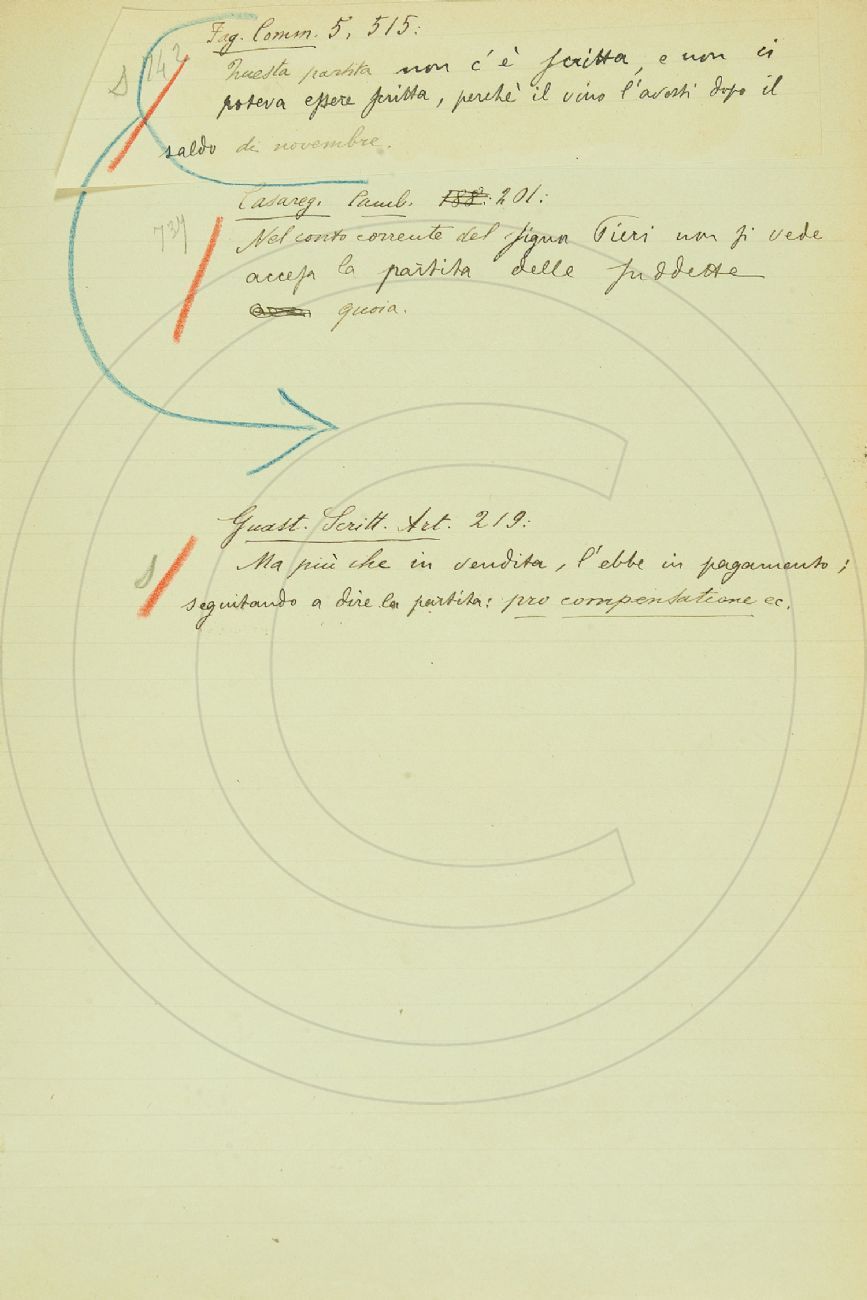 Fag. Comm. 5, 515:
S 742
Questa partita non c'è scritta, e non ci
poteva essere scritta, perchè il vino l'avesti dopo il
saldo di novembre.
Casareg. Camb. 188. 201:
737
Nel conto corrente del signor Pieri non si vede
accesa la partita delle suddette
quoia.
Guast. Scritt. Art. 219:
S
Ma più che in vendita, l'ebbe in pagamento;
seguitando a dire la partita: pro compensatione ec.